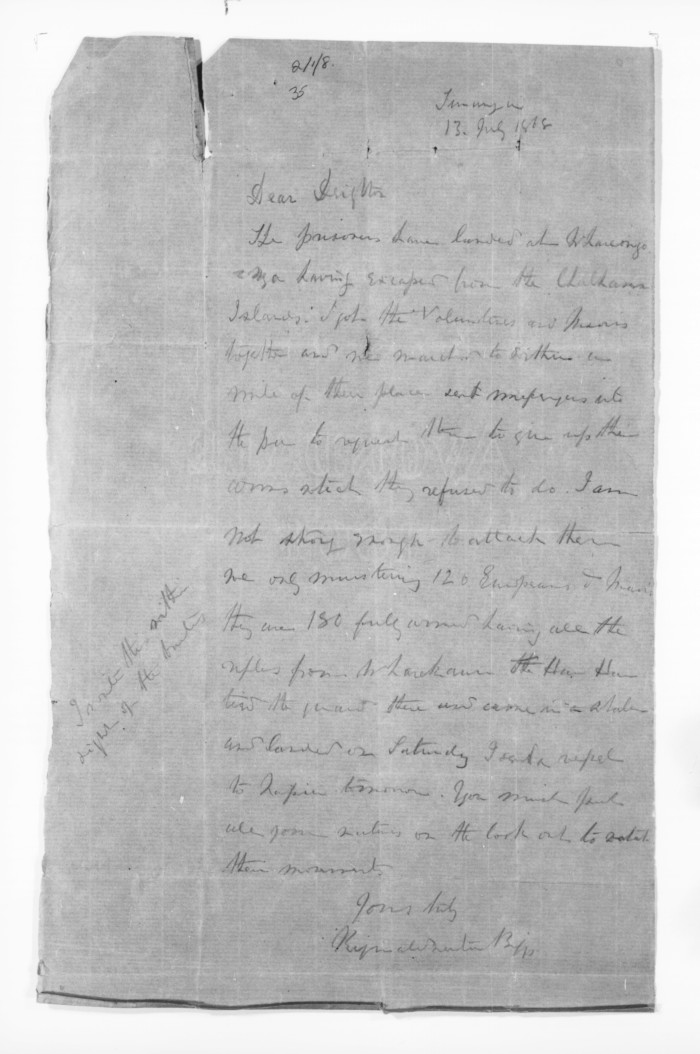 211/8.
35
Turanga
13. July 1868
Dear Deighton
The prisoners have landed at Whareongo
= nga having escaped from the Chatham
Islands. I got the Volunteers and Maoris
together and we marched to within a
mile of their place sent messengers into
the pa to request them to give up their
arms which they refused to do. I am
not strong enough to attack them
we only mustering 120 Europeans &
they are 180 fully armed having all the
rifles from the Hau Hau
tied the guard there and came in a
and landed on Saturday I send a
to Napier tomorrow. You must put
all your natives on the look out to watch
their movements
Yours truly
Reginald Newton Biggs
I write this within
sight of the